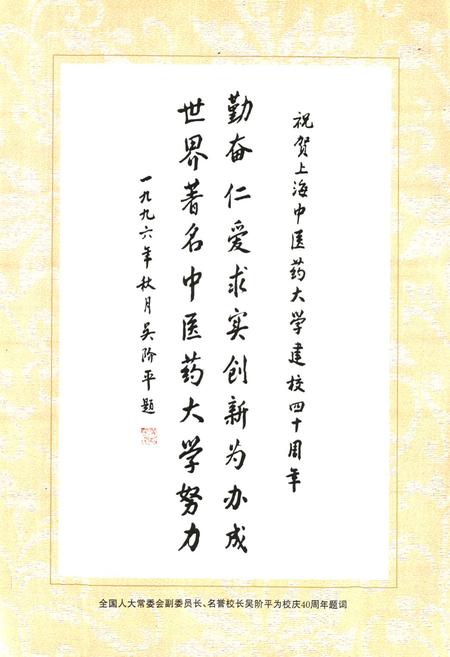 祝贺上海中医药大学建校四十周年
勤奋仁爱求实创新为办成
世界著名中医药大学努力
一九九六年秋月吴阶平题
全国人大常委会副委员长、名誉校长吴阶平为校庆40周年题词